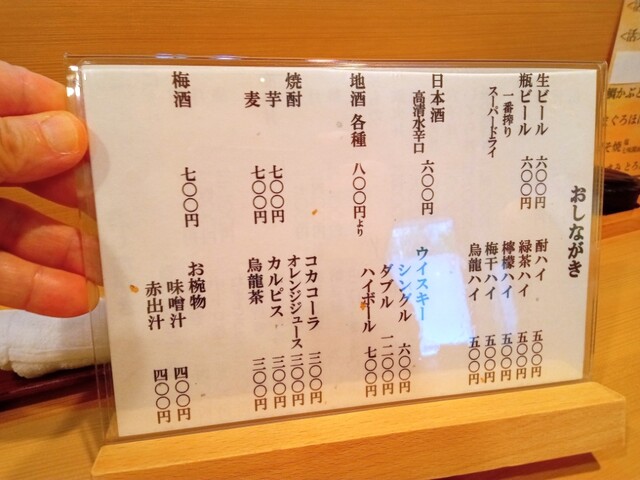 おしながき
生ビール 六〇〇円
瓶ビール 六〇〇円
一番搾り
スーパードライ
日本酒
高清水辛口 六〇〇円
地酒 各種 八〇〇円より
焼酎
芋 七〇〇円
麦 七〇〇円
梅酒 七〇〇円
酎ハイ 五〇〇円
緑茶ハイ 五〇〇円
檸檬ハイ 五〇〇円
梅干ハイ 五〇〇円
烏龍ハイ 五〇〇円
ウイスキー
シングル 六〇〇円
ダブル 一二〇〇円
ハイボール 七〇〇円
コカコーラ 三〇〇円
オレンジジュース 三〇〇円
カルピス 三〇〇円
烏龍茶 三〇〇円
お椀物
味噌汁 四〇〇円
赤出汁 四〇〇円